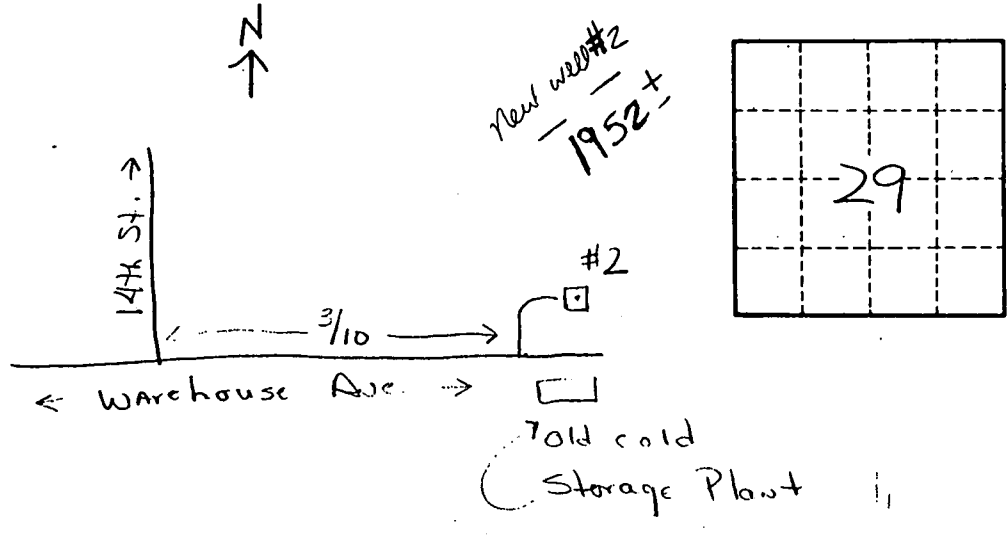 N
New well #2
1952 ±
29
14th St.
#2
3/10
Warehouse Ave.
old cold
Storage Plant